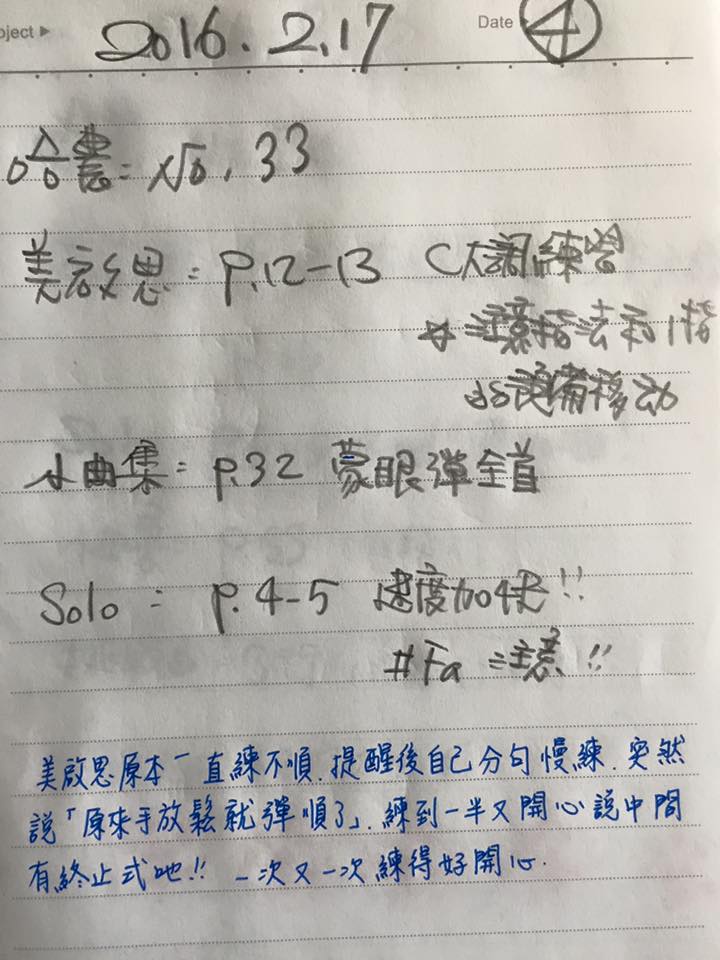 oject ▶ 2016.2.17 Date ④
哈農: No. 33
美啟思: p.12-13 C大調練習
☆注意指法和1指
的設備移动
小曲集: p.32 蒙眼彈全首
Solo: p.4-5 速度加快!!
#Fa 注意!!
美啟思原本一直練不順.提醒後自己分句慢練.突然
說「原來手放鬆就彈順了」.練到一半又開心說中間
有終止式吔!! 一次又一次練得好開心.